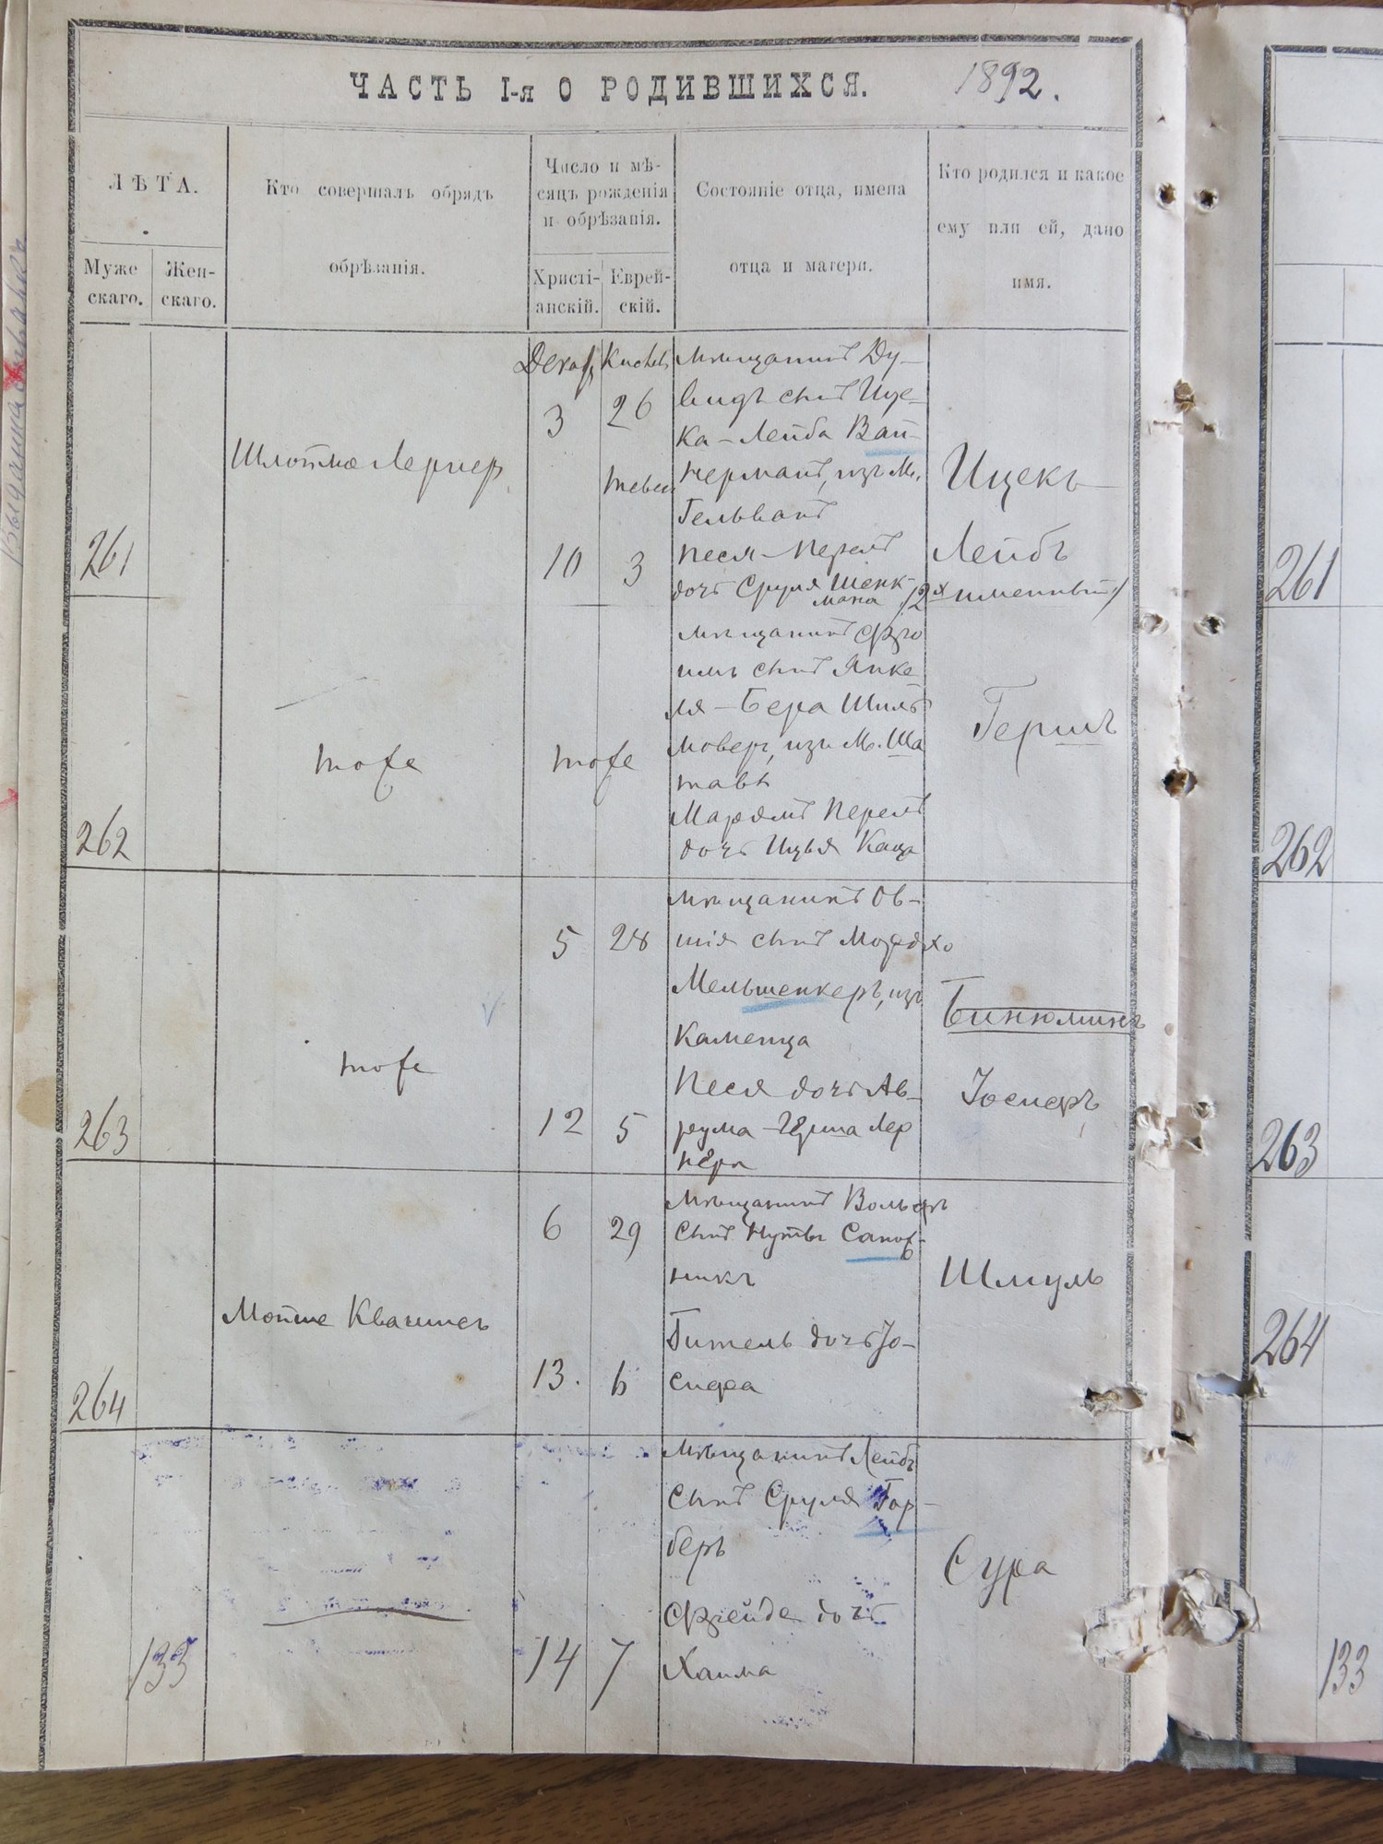 ЧАСТЬ I-я О РОДИВШИХСЯ. 1892.
ЛѢТА.
Муже
скаго.
Жен-
скаго.
Кто совершалъ обрядъ
обрѣзанія.
Число и мѣ-
сяцъ рожденія
и обрѣзанія.
Христі-
анскій.
Еврей-
скій.
Состояніе отца, имена
отца и матери.
Кто родился и какое
ему или ей, дано
имя.
261
Шлойма Лернер
Декаб
3
10
Кислев
26
тевес
3
мѣщанинъ Ду-
видъ сынъ Ице-
ка-Лейба Вай-
нерманъ, изъ м.
Песя-Перель
дочь Сруля Шенк-
мана
Ицекъ
Лейбъ
/2х именный/
262
тоже
тоже
мѣщанинъ Фро
имъ сынъ Янке
ля-Бера
изъ м. Ша
тавы
Марьямъ Перель
дочь
Гершъ
263
тоже
5
12
28
5
мѣщанинъ Ов-
шія сынъ Мордко
Мельшенкеръ, изъ
Каменца
Песя дочь Ав-
рума-Герша Лер
нера
Бинюминъ
Іосифъ
264
Мойше
6
13.
29
6
Мѣщанинъ Вольфъ
сынъ Нуты Сапож-
никъ
Гитель дочь Іо-
сифа
Шмуль
133
14
7
Мѣщанинъ Лейбъ
сынъ Сруля Гар-
беръ
Фрейде дочь
Хаима
Сура
261
262
263
264
133